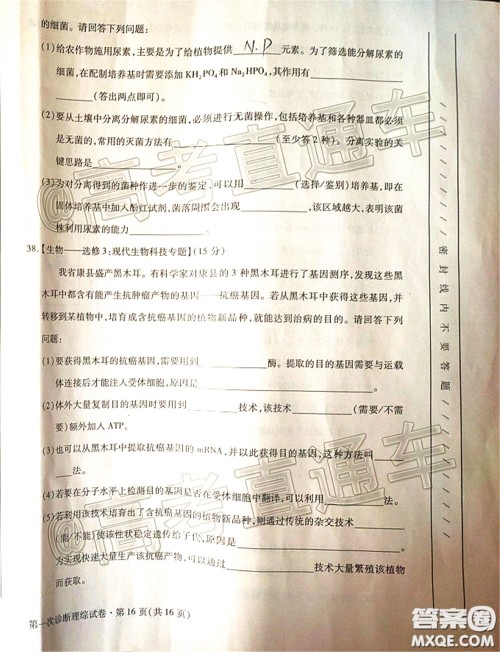 的细菌。请回答下列问题：
(1)给农作物施用尿素，主要是为了给植物提供 N.P 元素。为了筛选能分解尿素的
细菌，在配制培养基时需要添加KH₂PO₄和Na₂HPO₄，其作用有
(答出两点即可)。
(2)要从土壤中分离分解尿素的细菌，必须进行无菌操作，包括培养基和各种器皿都必须
是无菌的，常用的灭菌方法有(至少答2种)。分离实验的关
键思路是。
(3)为对分离得到的菌种作进一步的鉴定，可以用(选择/鉴别)培养基，即在
固体培养基中加入酚红试剂，菌落周围会出现，该区域越大，表明该菌
株利用尿素的能力
38.【生物——选修3：现代生物科技专题】(15分)
我省康县盛产黑木耳。有科学家对康县的3种黑木耳进行了基因测序，发现这些黑
木耳中都含有能产生抗肿瘤产物的基因——抗癌基因。若从黑木耳中获得这些基因，并
转移到某植物中，培育成含抗癌基因的植物新品种，就能达到治病的目的。请回答下列
问题：
(1)要获得黑木耳的抗癌基因，需要用到酶。提取的目的基因需要与运载
体连接后才能注入受体细胞，原因是。
(2)体外大量复制目的基因时要用到技术，该技术(需要/不需
要)额外加入ATP。
(3)也可以从黑木耳中提取抗癌基因的mRNA，并以此获得目的基因，这种方法叫
法。
(4)若要在分子水平上检测目的基因是否在受体细胞中翻译，可以利用法。
(5)若利用该技术培育的含抗癌基因的植物新品种，则通过传统的杂交技术
(能/不能)使该性状稳定遗传给子代，原因是。
为实现快速大量生产该抗癌产物，可以通过技术大量繁殖该植物
而获取。
第一次诊断理综试卷·第16页(共16页)
密封线内不要答题
@高考直通车
@高考直通车
答案圈
MXQE.COM